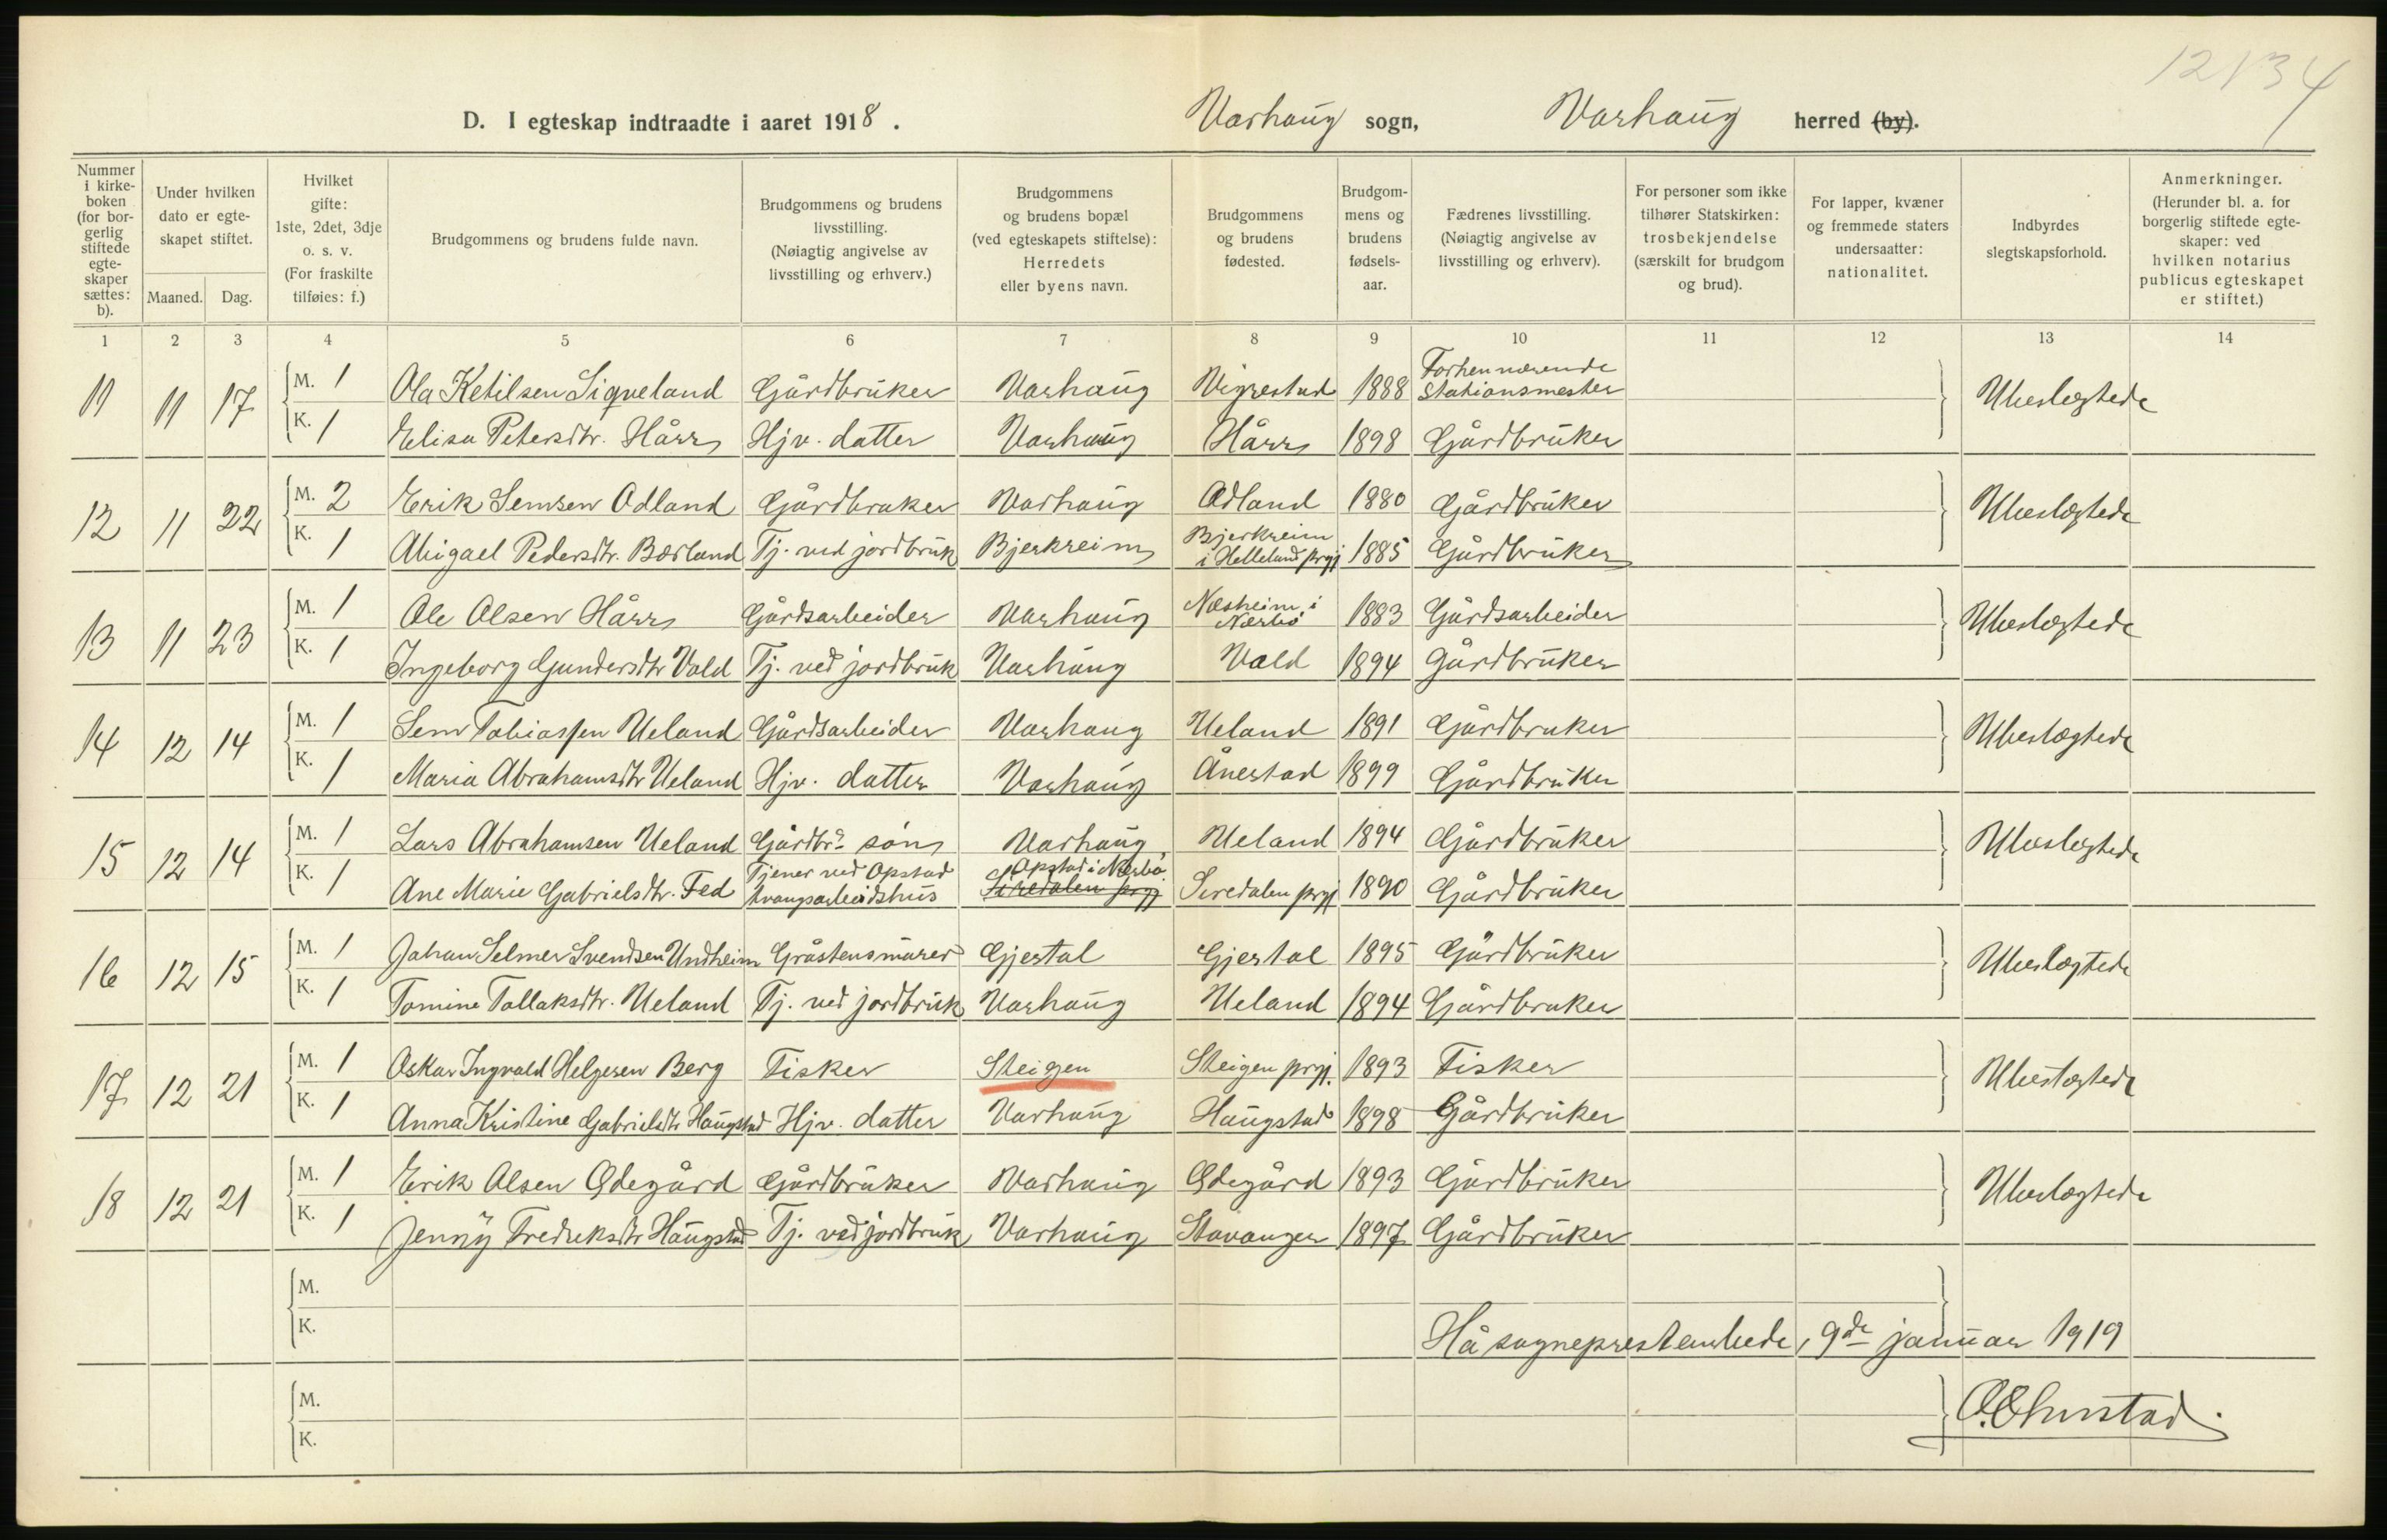 12134
D. I egteskap indtraadte i aaret 1918. Varhaug sogn, Varhaug herred (by).
Nummer i kirke-boken (for bor-gerlig stiftede egte-skaper sættes: b).
Under hvilken dato er egte-skapet stiftet.
Maaned. Dag.
Hvilket gifte: 1ste, 2det, 3dje o. s. v. (For fraskilte tilføies: f.)
Brudgommens og brudens fulde navn.
Brudgommens og brudens livsstilling. (Nøiagtig angivelse av livsstilling og erhverv.)
Brudgommens og brudens bopæl (ved egteskapets stiftelse): Herredets eller byens navn.
Brudgommens og brudens fødested.
Brudgom-mens og brudens fødsels-aar.
Fædrenes livsstilling. (Nøiagtig angivelse av livsstilling og erhverv).
For personer som ikke tilhører Statskirken: trosbekjendelse (særskilt for brudgom og brud).
For lapper, kvæner og fremmede staters undersaatter: nationalitet.
Indbyrdes slegtskapsforhold.
Anmerkninger. (Herunder bl. a. for borgerlig stiftede egte-skaper: ved hvilken notarius publicus egteskapet er stiftet.)
1 2 3 4 5 6 7 8 9 10 11 12 13 14
11 11 17 M. 1 Ola Ketilsen Sigveland Gårdbruker Varhaug Vigrestad 1888 Forhenværende Stationsmester Ubeslegtede
K. 1 Elisa Petersdtr. Hårr Hjv. datter Varhaug Hårr 1898 Gårdbruker
12 11 22 M. 2 Erik Semsen Odland Gårdbruker Varhaug Odland 1880 Gårdbruker Ubeslægtede
K. 1 Abigael Pedersdtr. Bærland Tj. ved jordbruk Bjerkreim Bjerkreim i Helleland prgj 1885 Gårdbruker
13 11 23 M. 1 Ole Olsen Hårr Gårdsarbeider Varhaug Næsheim i Nærbø 1883 Gårdsarbeider Ubeslægtede
K. 1 Ingeborg Gundersdtr Vold Tj. ved jordbruk Varhaug Vold 1894 Gårdbruker
14 12 14 M. 1 Sem Tobiassen Ueland Gårdsarbeider Varhaug Ueland 1891 Gårdbruker Ubeslægtede
K. 1 Maria Abrahamsdtr Ueland Hjv. datter Varhaug Ånestad 1899 Gårdbruker
15 12 14 M. 1 Lars Abrahamsen Ueland Gårdbr. søn Varhaug Ueland 1894 Gårdbruker Ubeslegtede
K. 1 Ane Marie Gabrielsdtr. Fed Tjener ved Opstad tvangsarbeidshus Opstad i Nærbø Siredalen prgj Siredalen prgj 1890 Gårdbruker
16 12 15 M. 1 Johan Selmer Svendsen Undheim Gråstensmurer Gjestal Gjestal 1895 Gårdbruker Ubeslægtede
K. 1 Tomine Tollaksdtr. Ueland Tj. ved jordbruk Varhaug Ueland 1894 Gårdbruker
17 12 21 M. 1 Oskar Ingvald Helgesen Berg Fisker Steigen Steigen prgj. 1893 Fisker Ubeslægtede
K. 1 Anna Kristine Gabrielsdtr Haugstad Hjv. datter Varhaug Haugstad 1898 Gårdbruker
18 12 21 M. 1 Erik Olsen Ødegård Gårdbruker Varhaug Ødegård 1893 Gårdbruker Ubeslægtede
K. 1 Jenny Fredriksdtr Haugstad Tj. ved jordbruk Varhaug Stavanger 1897 Gårdbruker
M.
K.
Hå sogneprestembede, 9de januar 1919
M.
K.